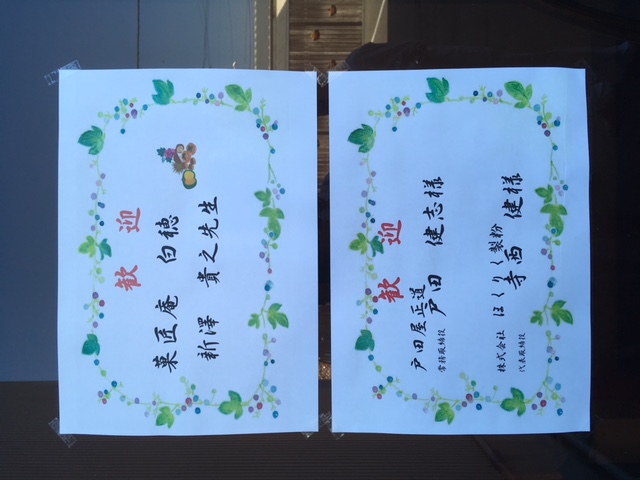 歓迎
菓匠庵 白穂
新澤 貴之先生
歓迎
戸田屋正道
常務取締役 戸田 健志様
株式会社 ほくりく製粉
代表取締役 寺西 健様